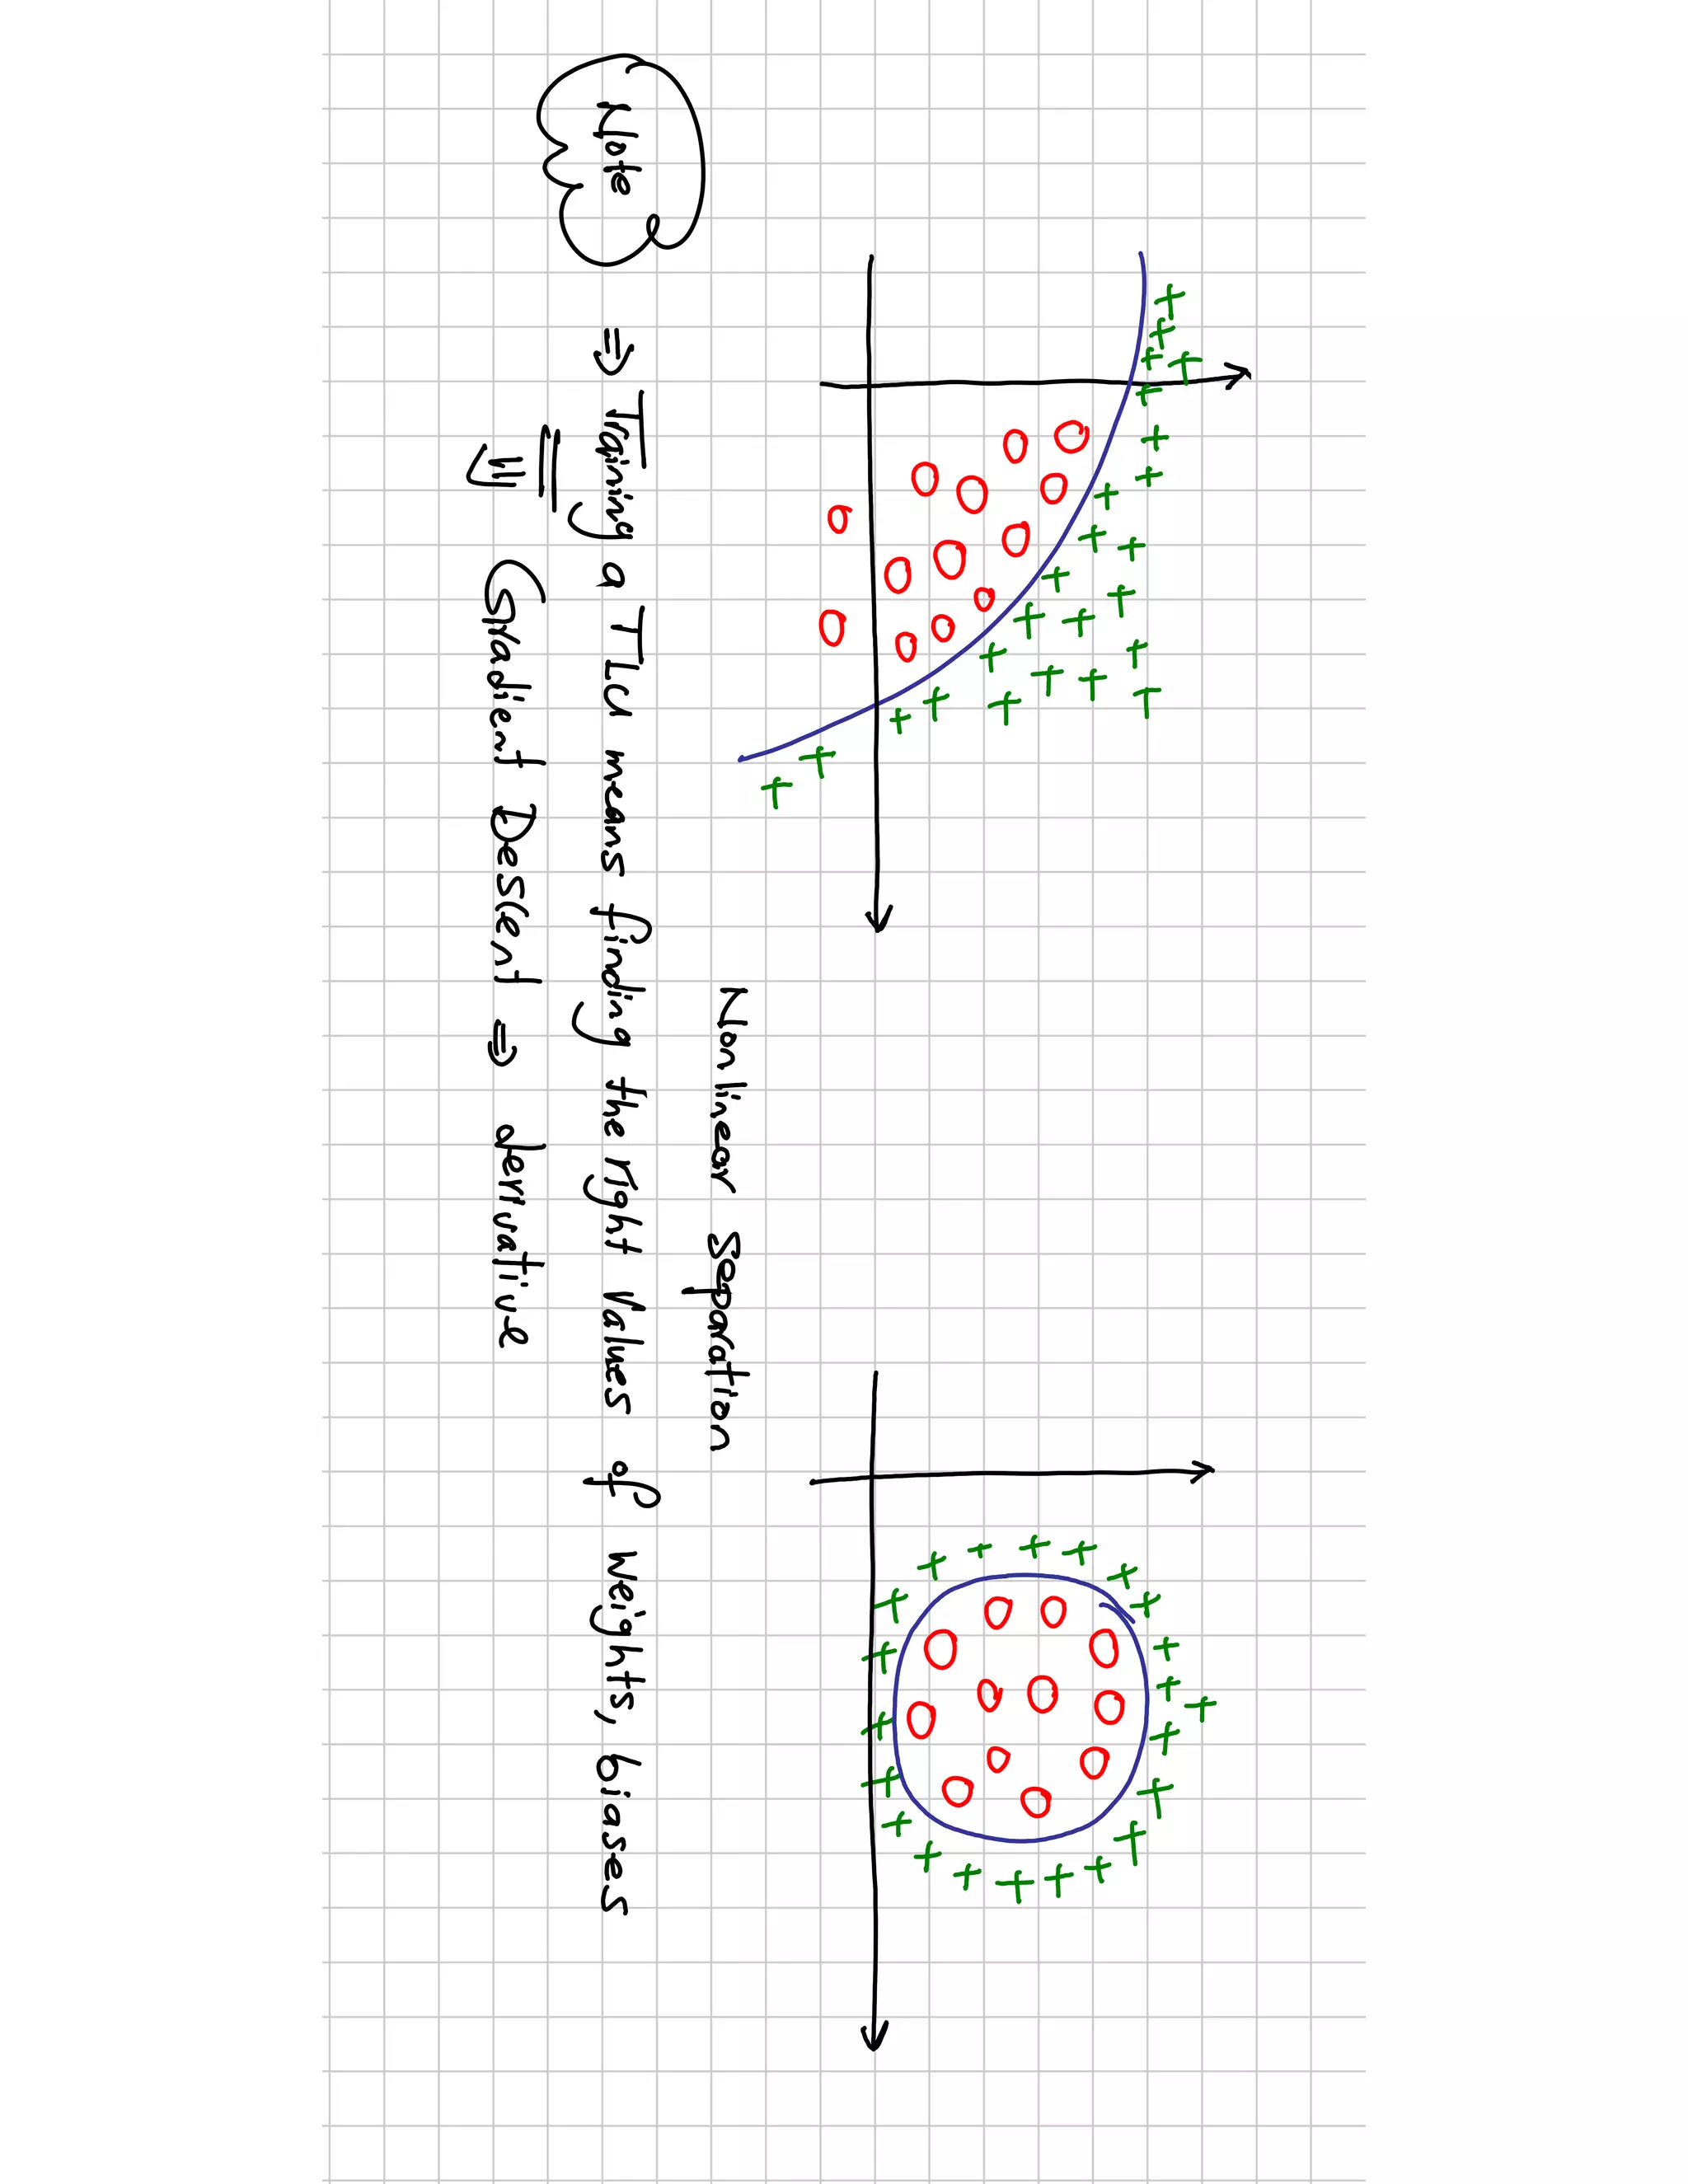 Nonlinear Separation
Note ⇒ Training a TLU means finding the right values of weights, biases
Gradient Descent ⇒ derivative